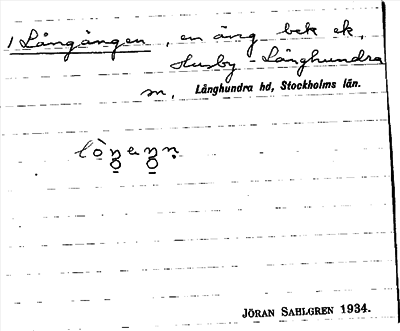 1 Långängen, en äng bek ek,
Husby - Långhundra
sn, Långhundra hd, Stockholms län.
JÖRAN SAHLGREN 1934.